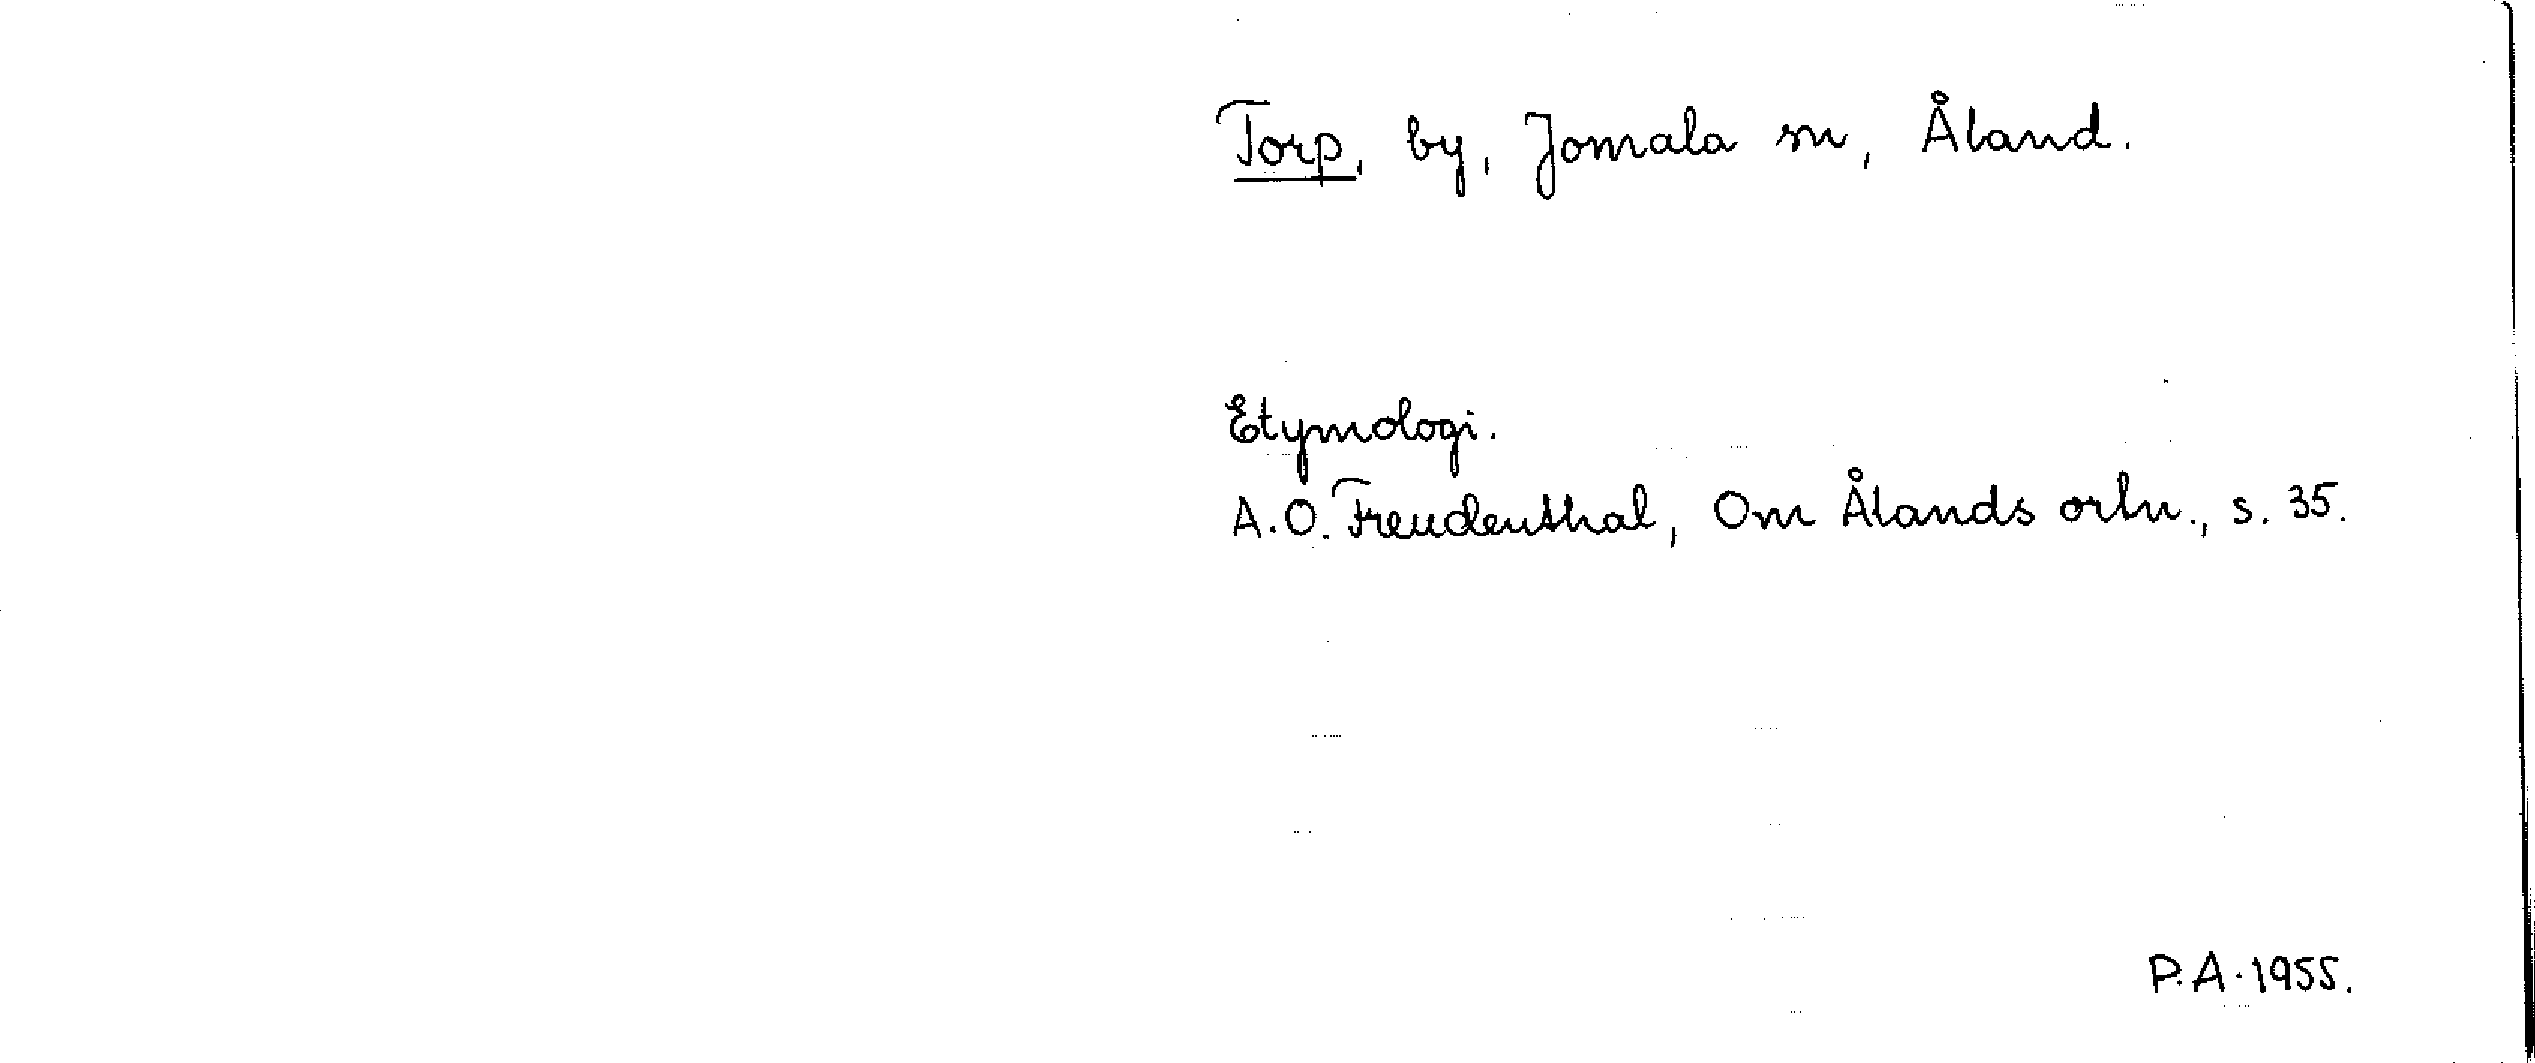 Torp, by, Jomala sn, Åland.
Etymologi.
A.O. Freudenthal, Om Ålands ortn., s. 35.
P.A. 1955.